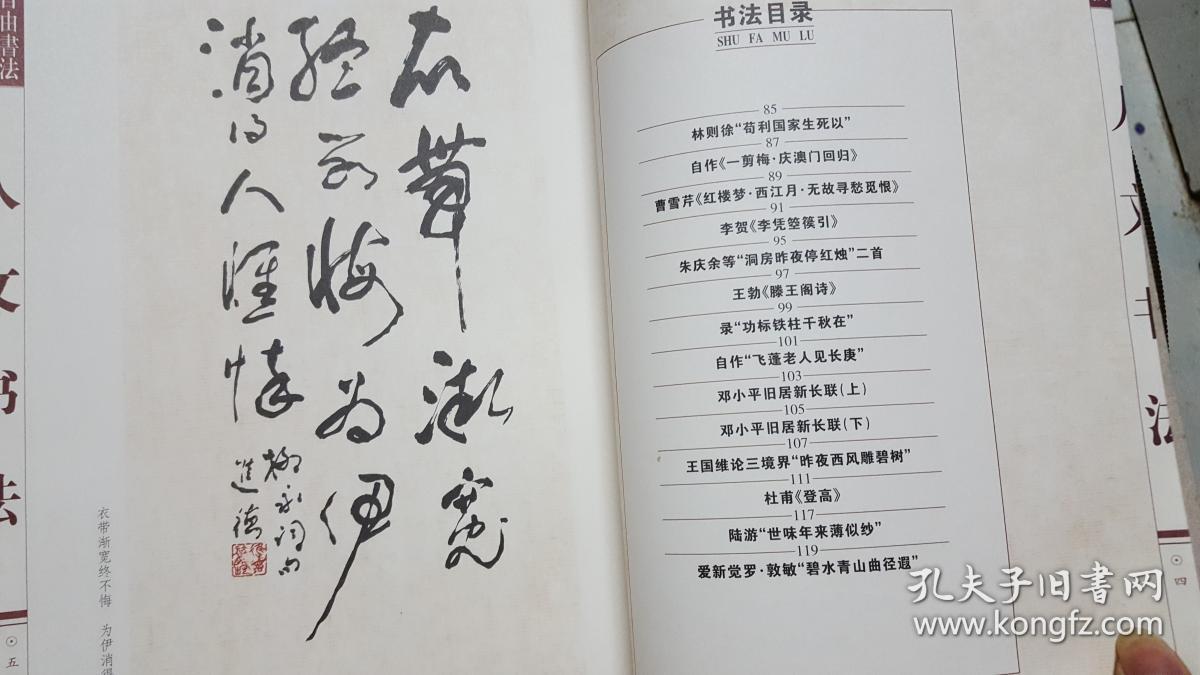 自由書法
人文书法
五
衣带渐宽终不悔
消得人憔悴
经不悔为伊
衣带渐宽
柳永词句
进德
衣带渐宽终不悔 为伊消得
书法目录
SHU FA MU LU
85
林则徐“苟利国家生死以”
87
自作《一剪梅·庆澳门回归》
89
曹雪芹《红楼梦·西江月·无故寻愁觅恨》
91
李贺《李凭箜篌引》
95
朱庆余等“洞房昨夜停红烛”二首
97
王勃《滕王阁诗》
99
录“功标铁柱千秋在”
101
自作“飞蓬老人见长庚”
103
邓小平旧居新长联(上)
105
邓小平旧居新长联(下)
107
王国维论三境界“昨夜西风雕碧树”
111
杜甫《登高》
117
陆游“世味年来薄似纱”
119
爱新觉罗·敦敏“碧水青山曲径遐”
四
孔夫子旧书网
www.kongfz.com